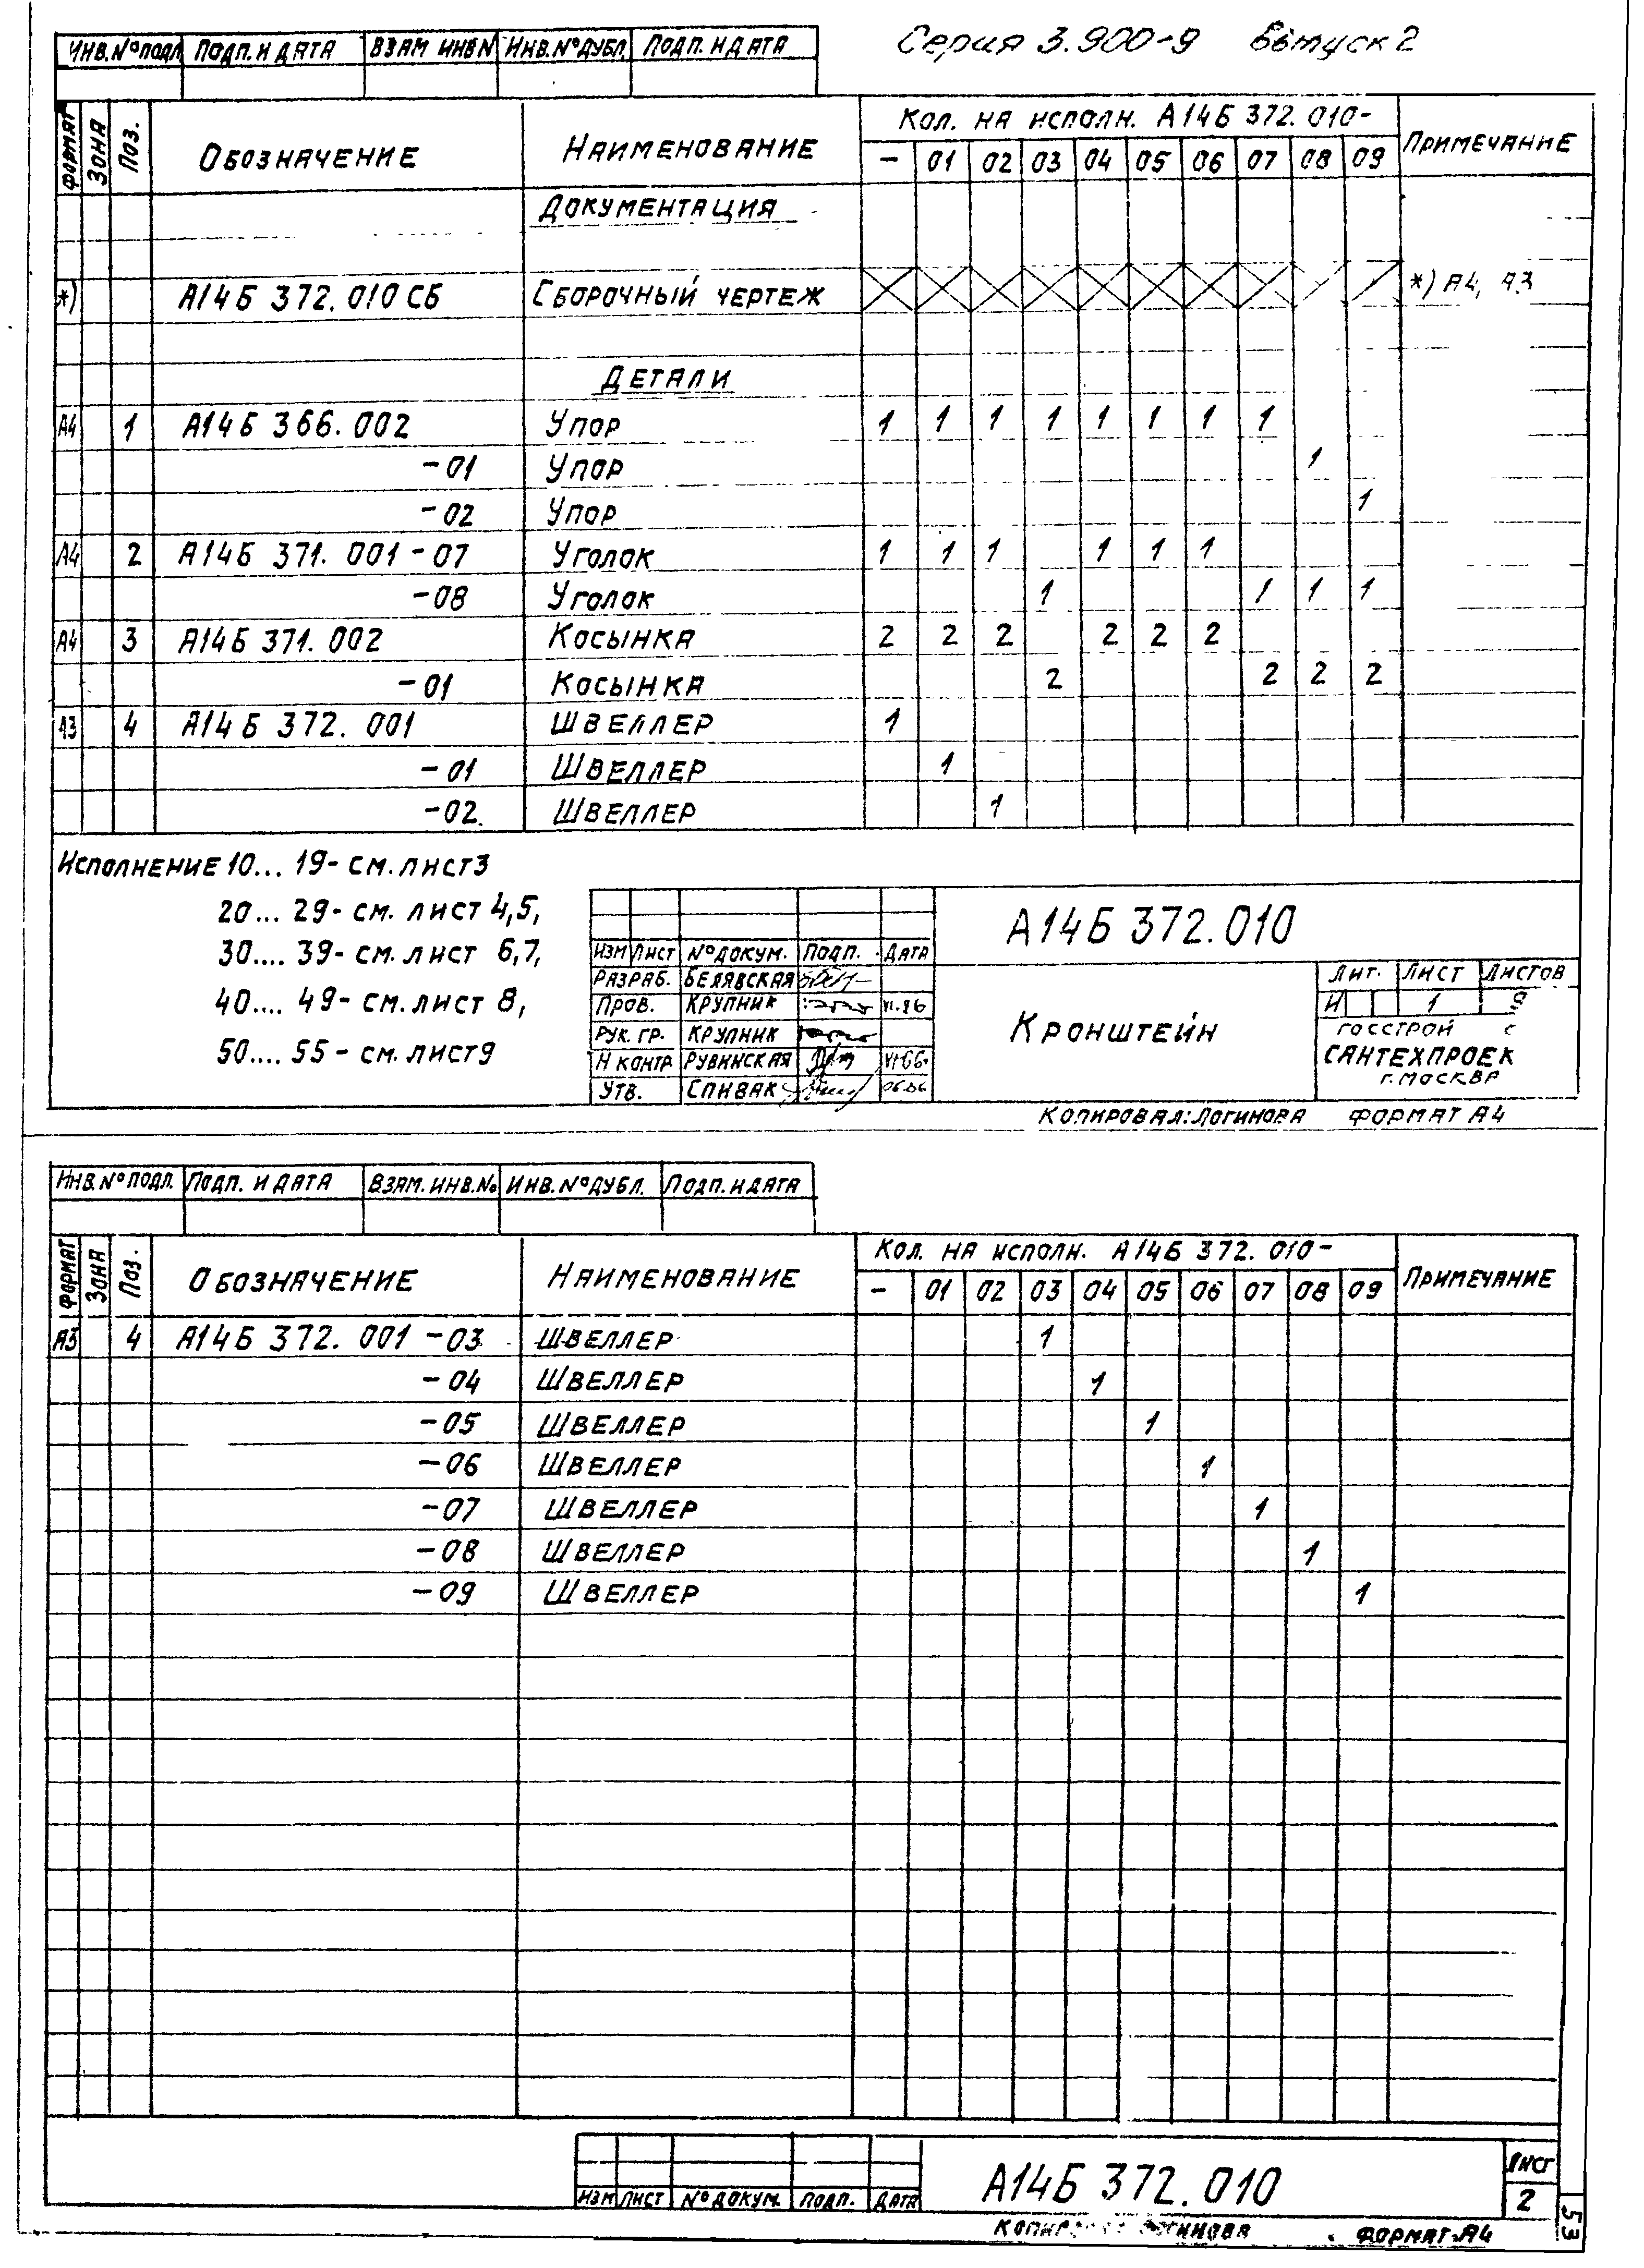 Серия 3.900-9 Выпуск 2
ИНВ.№ПОДЛ ПОДП.И ДАТА ВЗАМ ИНВ N ИНВ.№ДУБЛ. ПОДП.И ДАТА
ФОРМАТ ЗОНА ПОЗ. ОБОЗНАЧЕНИЕ НАИМЕНОВАНИЕ КОЛ. НА ИСПОЛН. А14Б 372.010- ПРИМЕЧАНИЕ
– 01 02 03 04 05 06 07 08 09
ДОКУМЕНТАЦИЯ
*) А14Б 372.010 СБ СБОРОЧНЫЙ ЧЕРТЕЖ *) А4, А3
ДЕТАЛИ
А4 1 А14Б 366.002 УПОР 1 1 1 1 1 1 1 1
-01 УПОР 1
-02 УПОР 1
А4 2 А14Б 371.001-07 УГОЛОК 1 1 1 1 1 1
-08 УГОЛОК 1 1 1 1
А4 3 А14Б 371.002 КОСЫНКА 2 2 2 2 2 2
-01 КОСЫНКА 2 2 2 2
А3 4 А14Б 372.001 ШВЕЛЛЕР 1
-01 ШВЕЛЛЕР 1
-02 ШВЕЛЛЕР 1
ИСПОЛНЕНИЕ 10... 19- СМ. ЛИСТ3
20... 29- СМ. ЛИСТ 4,5,
30.... 39- СМ. ЛИСТ 6,7,
40.... 49- СМ. ЛИСТ 8,
50.... 55- СМ. ЛИСТ9
А14Б 372.010
ИЗМ ЛИСТ №ДОКУМ. ПОДП. ДАТА
РАЗРАБ. БЕЛЯВСКАЯ
ПРОВ. КРУПНИК VI.86
РУК. ГР. КРУПНИК
Н КОНТР РУВИНСКАЯ
УТВ. СПИВАК
КРОНШТЕЙН
ЛИТ. ЛИСТ ЛИСТОВ
И 1 9
ГОССТРОЙ С
САНТЕХПРОЕК
Г.МОСКВА
КОПИРОВАЛ: ЛОГИНОВА ФОРМАТ А4
ИНВ.№ПОДЛ. ПОДП. И ДАТА ВЗАМ. ИНВ.№ ИНВ.№ДУБЛ. ПОДП.И ДАТА
ФОРМАТ ЗОНА ПОЗ. ОБОЗНАЧЕНИЕ НАИМЕНОВАНИЕ КОЛ. НА ИСПОЛН. А14Б 372.010- ПРИМЕЧАНИЕ
– 01 02 03 04 05 06 07 08 09
А3 4 А14Б 372.001-03 ШВЕЛЛЕР 1
-04 ШВЕЛЛЕР 1
-05 ШВЕЛЛЕР 1
-06 ШВЕЛЛЕР 1
-07 ШВЕЛЛЕР 1
-08 ШВЕЛЛЕР 1
-09 ШВЕЛЛЕР 1
ИЗМ ЛИСТ №ДОКУМ. ПОДП. ДАТА
А14Б 372.010
ЛИСТ
2
ФОРМАТ А4
53